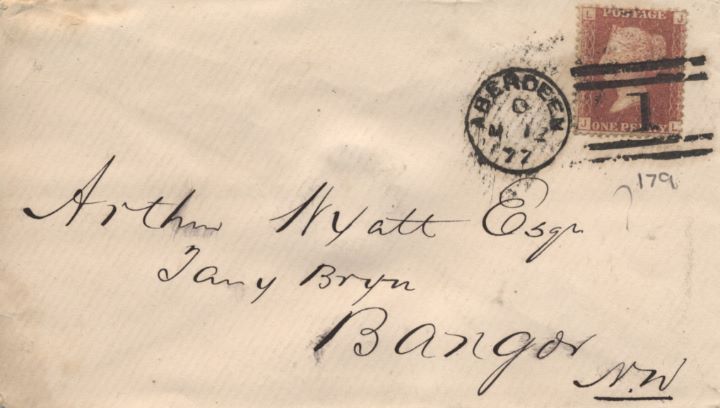 L J
POSTAGE
J L
ONE PENNY
ABERDEEN
O
12
77
1
179
Arthur Wyatt Esqr
Tan y Bryn
Bangor
N.W